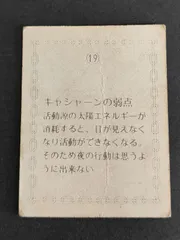 (19)
キャシャーンの弱点
活動源の太陽エネルギーが
消耗すると、目が見えなく
なり活動ができなくなる。
そのため夜の行動は思うよ
うに出来ない